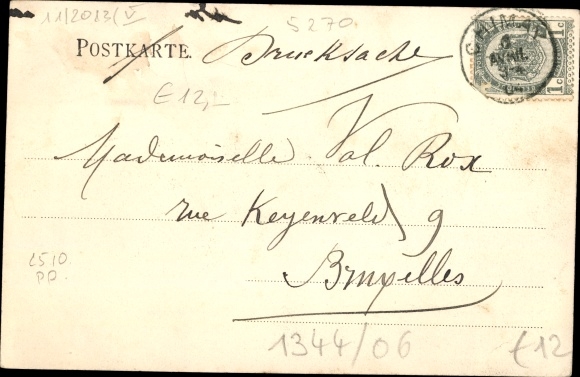 11/2013/V
5270
POSTKARTE. Drucksache
CHIMAY
AVRIL
1c 1c
€12,-
Mademoiselle Val. Rox
rue Keyenveld 9
Bruxelles
L510
PP.
1344/06
€12